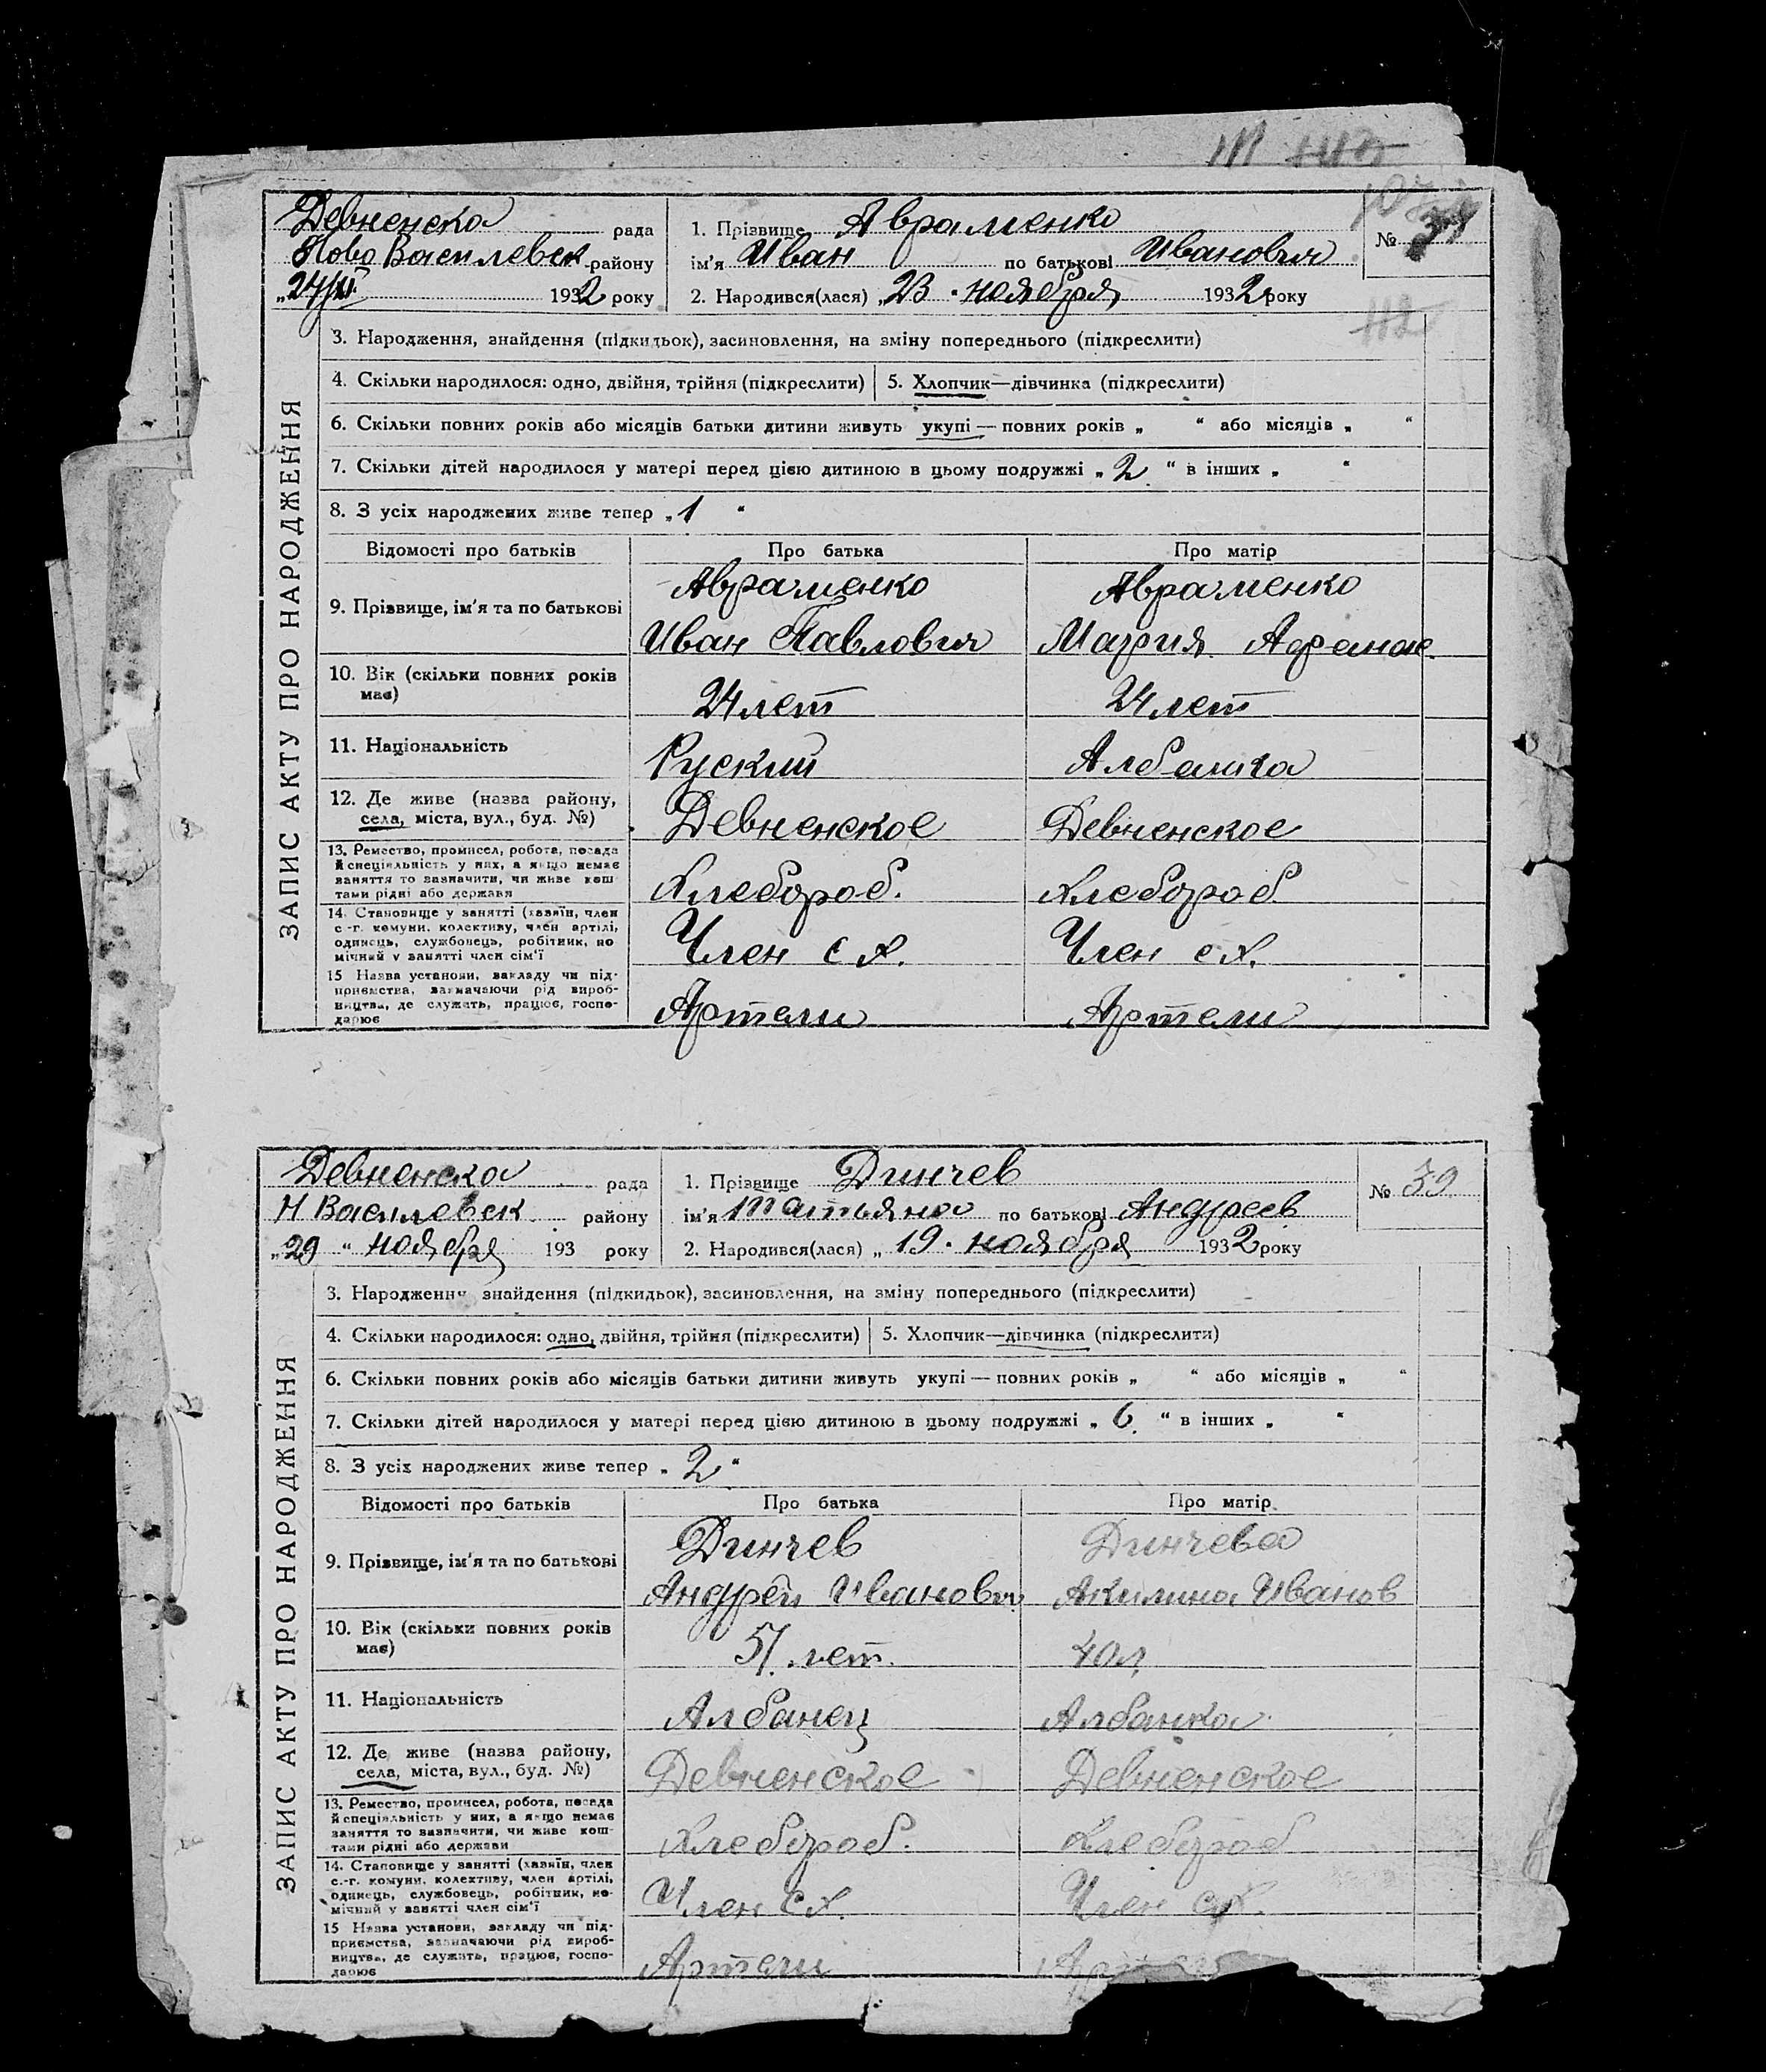 Девненска рада
Ново Василевск району
„24/XI 1932 року
1. Прізвище Авраменко
ім'я Иван по батькові Иванович
2. Народився(лася) „23 ноября 1932 року
№
ЗАПИС АКТУ ПРО НАРОДЖЕННЯ
3. Народження, знайдення (підкидьок), засиновлення, на зміну попереднього (підкреслити)
4. Скільки народилося: одно, двійня, трійня (підкреслити) 5. Хлопчик—дівчинка (підкреслити)
6. Скільки повних років або місяців батьки дитини живуть укупі — повних років „ “ або місяців „ “
7. Скільки дітей народилося у матері перед цією дитиною в цьому подружжі „2“ в інших „ “
8. З усіх народжених живе тепер „1“
Відомості про батьків Про батька Про матір
9. Прізвище, ім'я та по батькові
Авраменко Авраменко
Иван Павлович Мария Афанас
10. Вік (скільки повних років
має)
24 лет 24 лет
11. Національність Руский Албанка
12. Де живе (назва району,
села, міста, вул., буд. №)
Девненское Девненское
13. Ремество, промисел, робота, посада
й спеціяльність у них, а якщо немає
заняття то зазначити, чи живе кош
тами рідні або держави
Хлебороб. Хлебороб
14. Становище у занятті (хазяїн, член
с.-г. комуни, колективу, член артілі,
одинець, службовець, робітник, по
мічний у занятті член сім'ї
Член с х. Член с х.
15 Назва установи, закладу чи під-
приємства, зазначаючи рід вироб-
ництва, де служить, працює, госпо-
дарює
Артели Артели
Девненска рада
Н Василевск району
„29“ ноября 193 року
1. Прізвище Динчев
ім'я Татьяна по батькові Андреев
2. Народився(лася) „19 ноября 1932 року
№ 39
ЗАПИС АКТУ ПРО НАРОДЖЕННЯ
3. Народження знайдення (підкидьок), засиновлення, на зміну попереднього (підкреслити)
4. Скільки народилося: одно, двійня, трійня (підкреслити) 5. Хлопчик—дівчинка (підкреслити)
6. Скільки повних років або місяців батьки дитини живуть укупі — повних років „ “ або місяців „ “
7. Скільки дітей народилося у матері перед цією дитиною в цьому подружжі „6“ в інших „ “
8. З усіх народжених живе тепер „2“
Відомості про батьків Про батька Про матір
9. Прізвище, ім'я та по батькові
Динчев Динчева
Андрей Иванович Акилина Иванов
10. Вік (скільки повних років
має)
51 лет. 40 л
11. Національність Албанец Албанка
12. Де живе (назва району,
села, міста, вул., буд. №)
Девненское Девненское
13. Ремество, промисел, робота, посада
й спеціяльність у них, а якщо немає
заняття то зазначити, чи живе кош-
тами рідні або держави
Хлебороб. Хлебороб
14. Становище у занятті (хазяїн, член
с.-г. комуни, колективу, член артілі,
одинець, службовець, робітник, по-
мічний у занятті член сім'ї
Член с х. Член с х.
15 Назва установи, закладу чи під-
приємства, зазначаючи рід вироб-
ництва, де служить, працює, госпо-
дарює
Артели